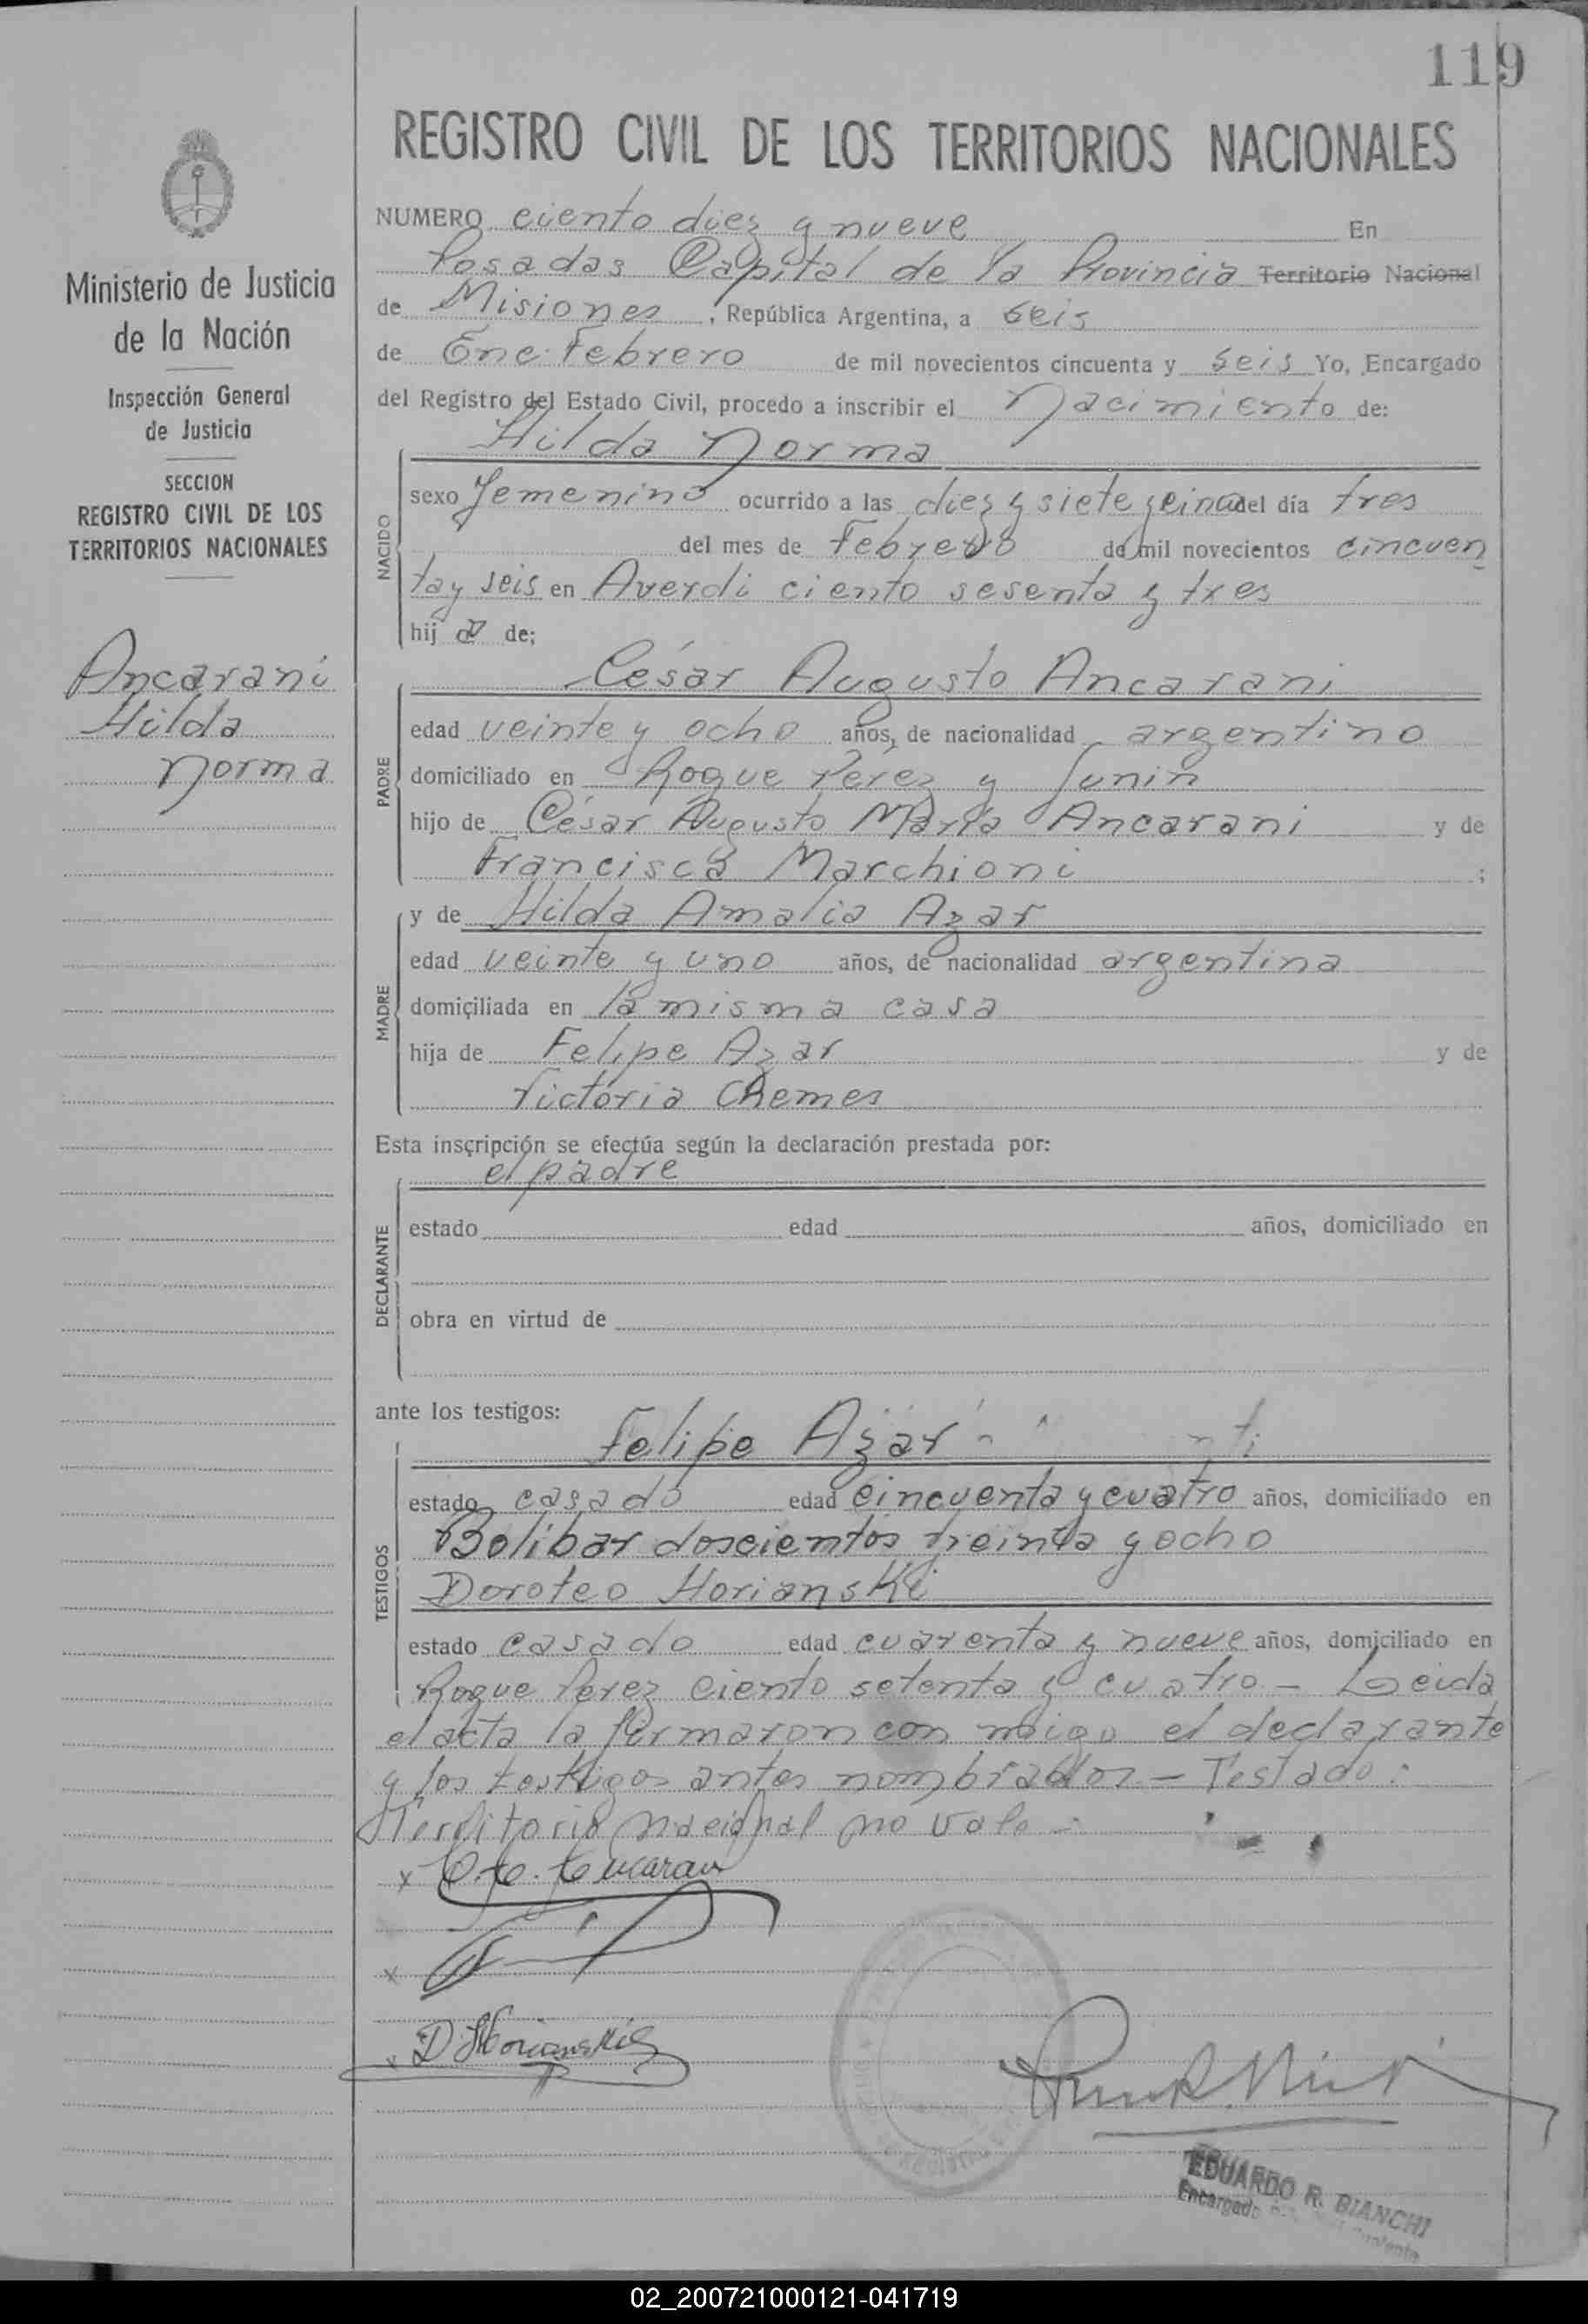 119
REGISTRO CIVIL DE LOS TERRITORIOS NACIONALES
Ministerio de Justicia
de la Nación
Inspección General
de Justicia
SECCION
REGISTRO CIVIL DE LOS
TERRITORIOS NACIONALES
Ancarani
Hilda
Norma
NUMERO ciento diez y nueve En
Posadas Capital de la Provincia Territorio Nacional
de Misiones, República Argentina, a seis
de Ene: Febrero de mil novecientos cincuenta y seis Yo, Encargado
del Registro del Estado Civil, procedo a inscribir el Nacimiento de:
Hilda Norma
NACIDO
sexo femenino ocurrido a las diez y siete del día tres
del mes de Febrero de mil novecientos cincuen
ta y seis en Averdi ciento sesenta y tres
hij a de;
César Augusto Ancarani
PADRE
edad veinte y ocho años, de nacionalidad argentino
domiciliado en Roque Pérez y Junin
hijo de César Augusto María Ancarani y de
Francisca Marchioni ;
MADRE
y de Hilda Amalia Azar
edad veinte y uno años, de nacionalidad argentina
domiciliada en la misma casa
hija de Felipe Azar y de
Victoria Chemes
Esta inscripción se efectúa según la declaración prestada por:
el padre
DECLARANTE
estado edad años, domiciliado en
obra en virtud de
ante los testigos:
Felipe Azar
TESTIGOS
estado casado edad cincuenta y cuatro años, domiciliado en
Bolibar doscientos treinta y ocho
Doroteo Horianski
estado casado edad cuarenta y nueve años, domiciliado en
Roque Perez ciento setenta y cuatro - Leida
el acta la firmaron con migo el declarante
y los testigos antes nombrados - Testado:
Territorio nacional no vale -
x C. A. Ancarani
x
x D. Horianski
EDUARDO R. BIANCHI
Encargado
02_200721000121-041719